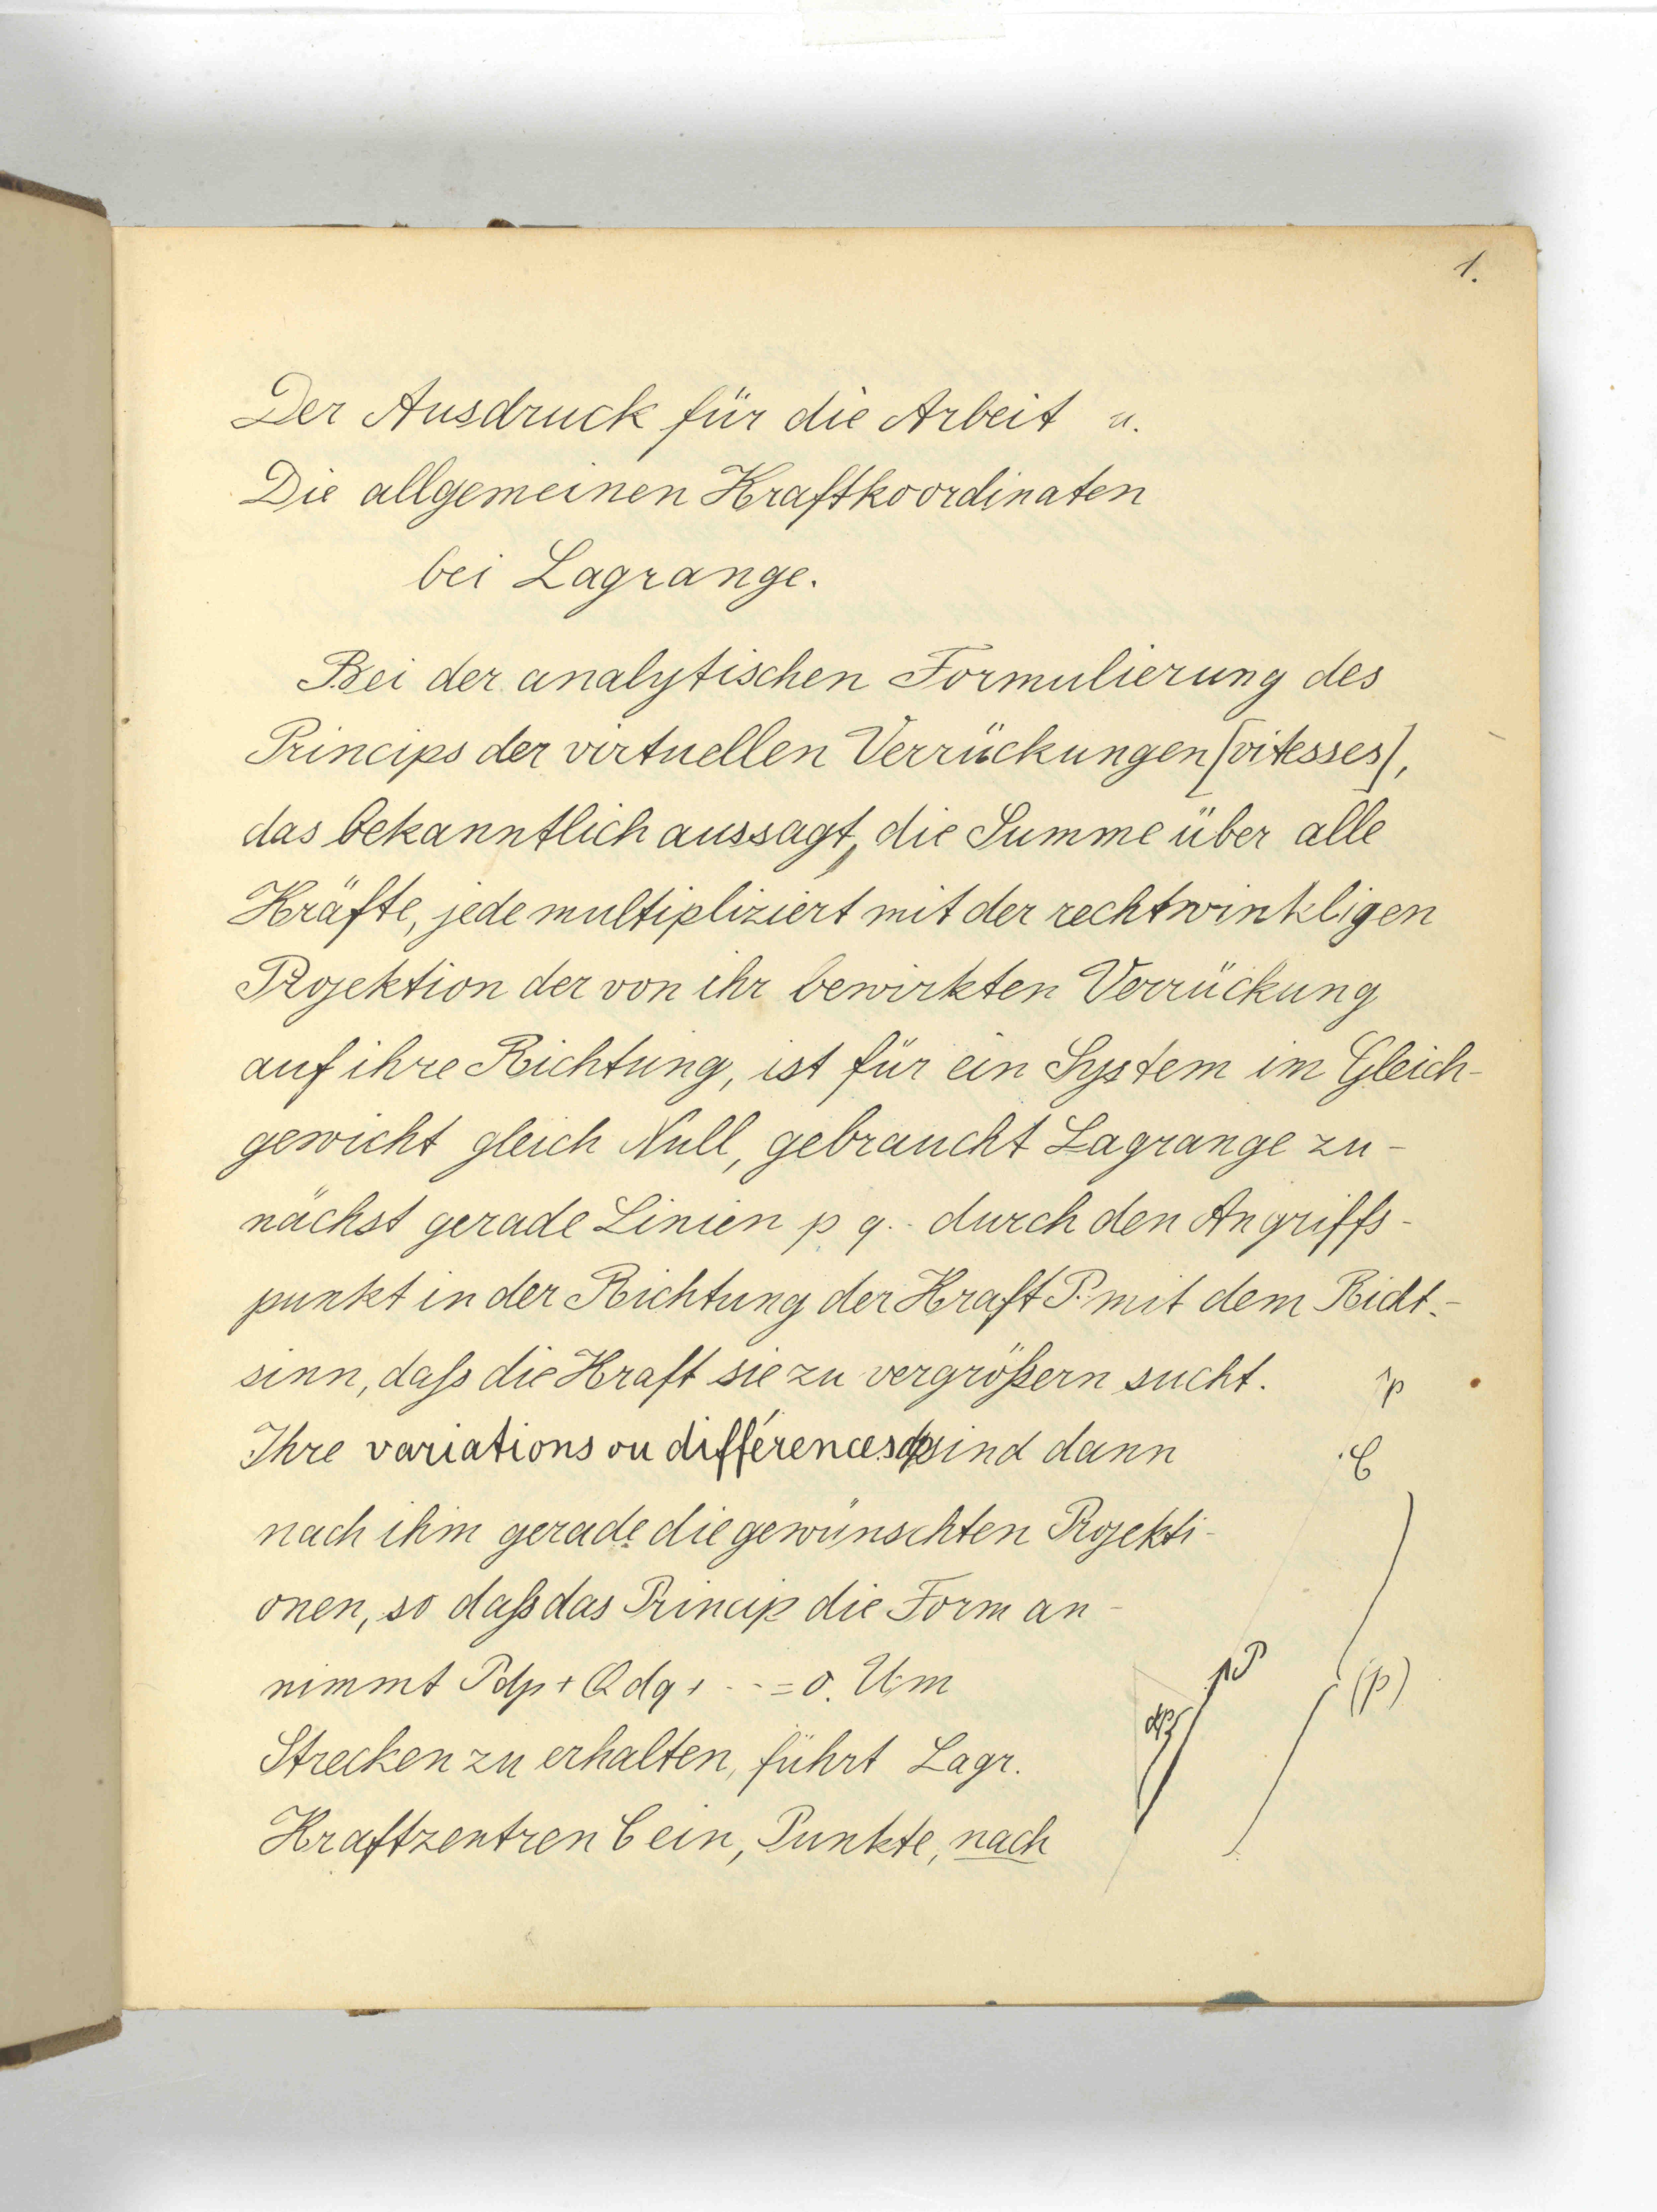 1.
Der Ausdruck für die Arbeit u.
Die allgemeinen Kraftkoordinaten
bei Lagrange.
Bei der analytischen Formulierung des
Princips der virtuellen Verrückungen [vitesses],
das bekanntlich aussagt, die Summe über alle
Kräfte, jede multipliziert mit der rechtwinkligen
Projektion der von ihr bewirkten Verrückung
auf ihre Richtung, ist für ein System im Gleich-
gewicht gleich Null, gebraucht Lagrange zu-
nächst gerade Linien p q.. durch den Angriffs-
punkt in der Richtung der Kraft P.. mit dem Richt.-
sinn, daß die Kraft sie zu vergrößern sucht.
Ihre variations ou différences dp sind dann
nach ihm gerade die gewünschten Projekti-
onen, so daß das Princip die Form an-
nimmt Pdp + Qdq + --- = 0. Um
Strecken zu erhalten, führt Lagr.
Kraftzentren C ein, Punkte, nach
p
C
P
(p)
dp